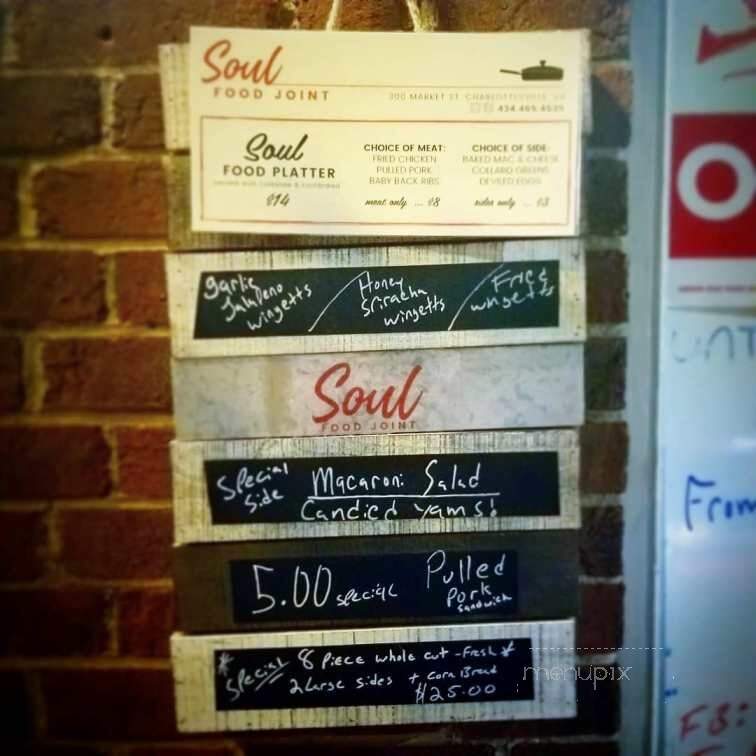 Soul
FOOD JOINT
300 MARKET ST. CHARLOTTESVILLE, VA
434.465.4505
Soul
FOOD PLATTER
$14
CHOICE OF MEAT:
FRIED CHICKEN
PULLED PORK
BABY BACK RIBS
meat only ... $8
CHOICE OF SIDE:
BAKED MAC & CHEESE
COLLARD GREENS
DEVILED EGGS
sides only ... $3
garlic
Jalapeno
wingetts
Honey
Sriracha
wingetts
Fried
wingetts
Soul
FOOD JOINT
Special
Side
Macaroni Salad
Candied yams!
5.00 special
Pulled
Pork
Sandwich
*Special 8 Piece whole cut - Fresh *
2 Large sides + Corn Bread
$25.00
menupix
From